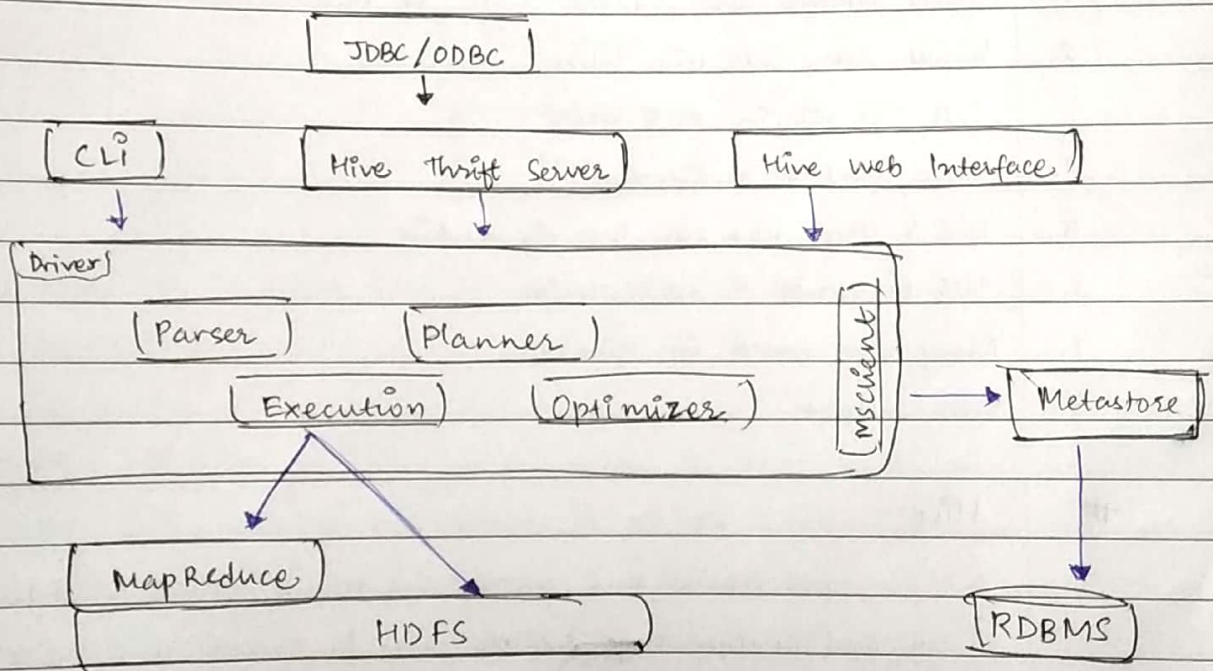 JDBC/ODBC
CLi
Hive Thrift Server
Hive web Interface
Driver
Parser
Planner
Execution
Optimizer
MSClient
Metastore
MapReduce
HDFS
RDBMS